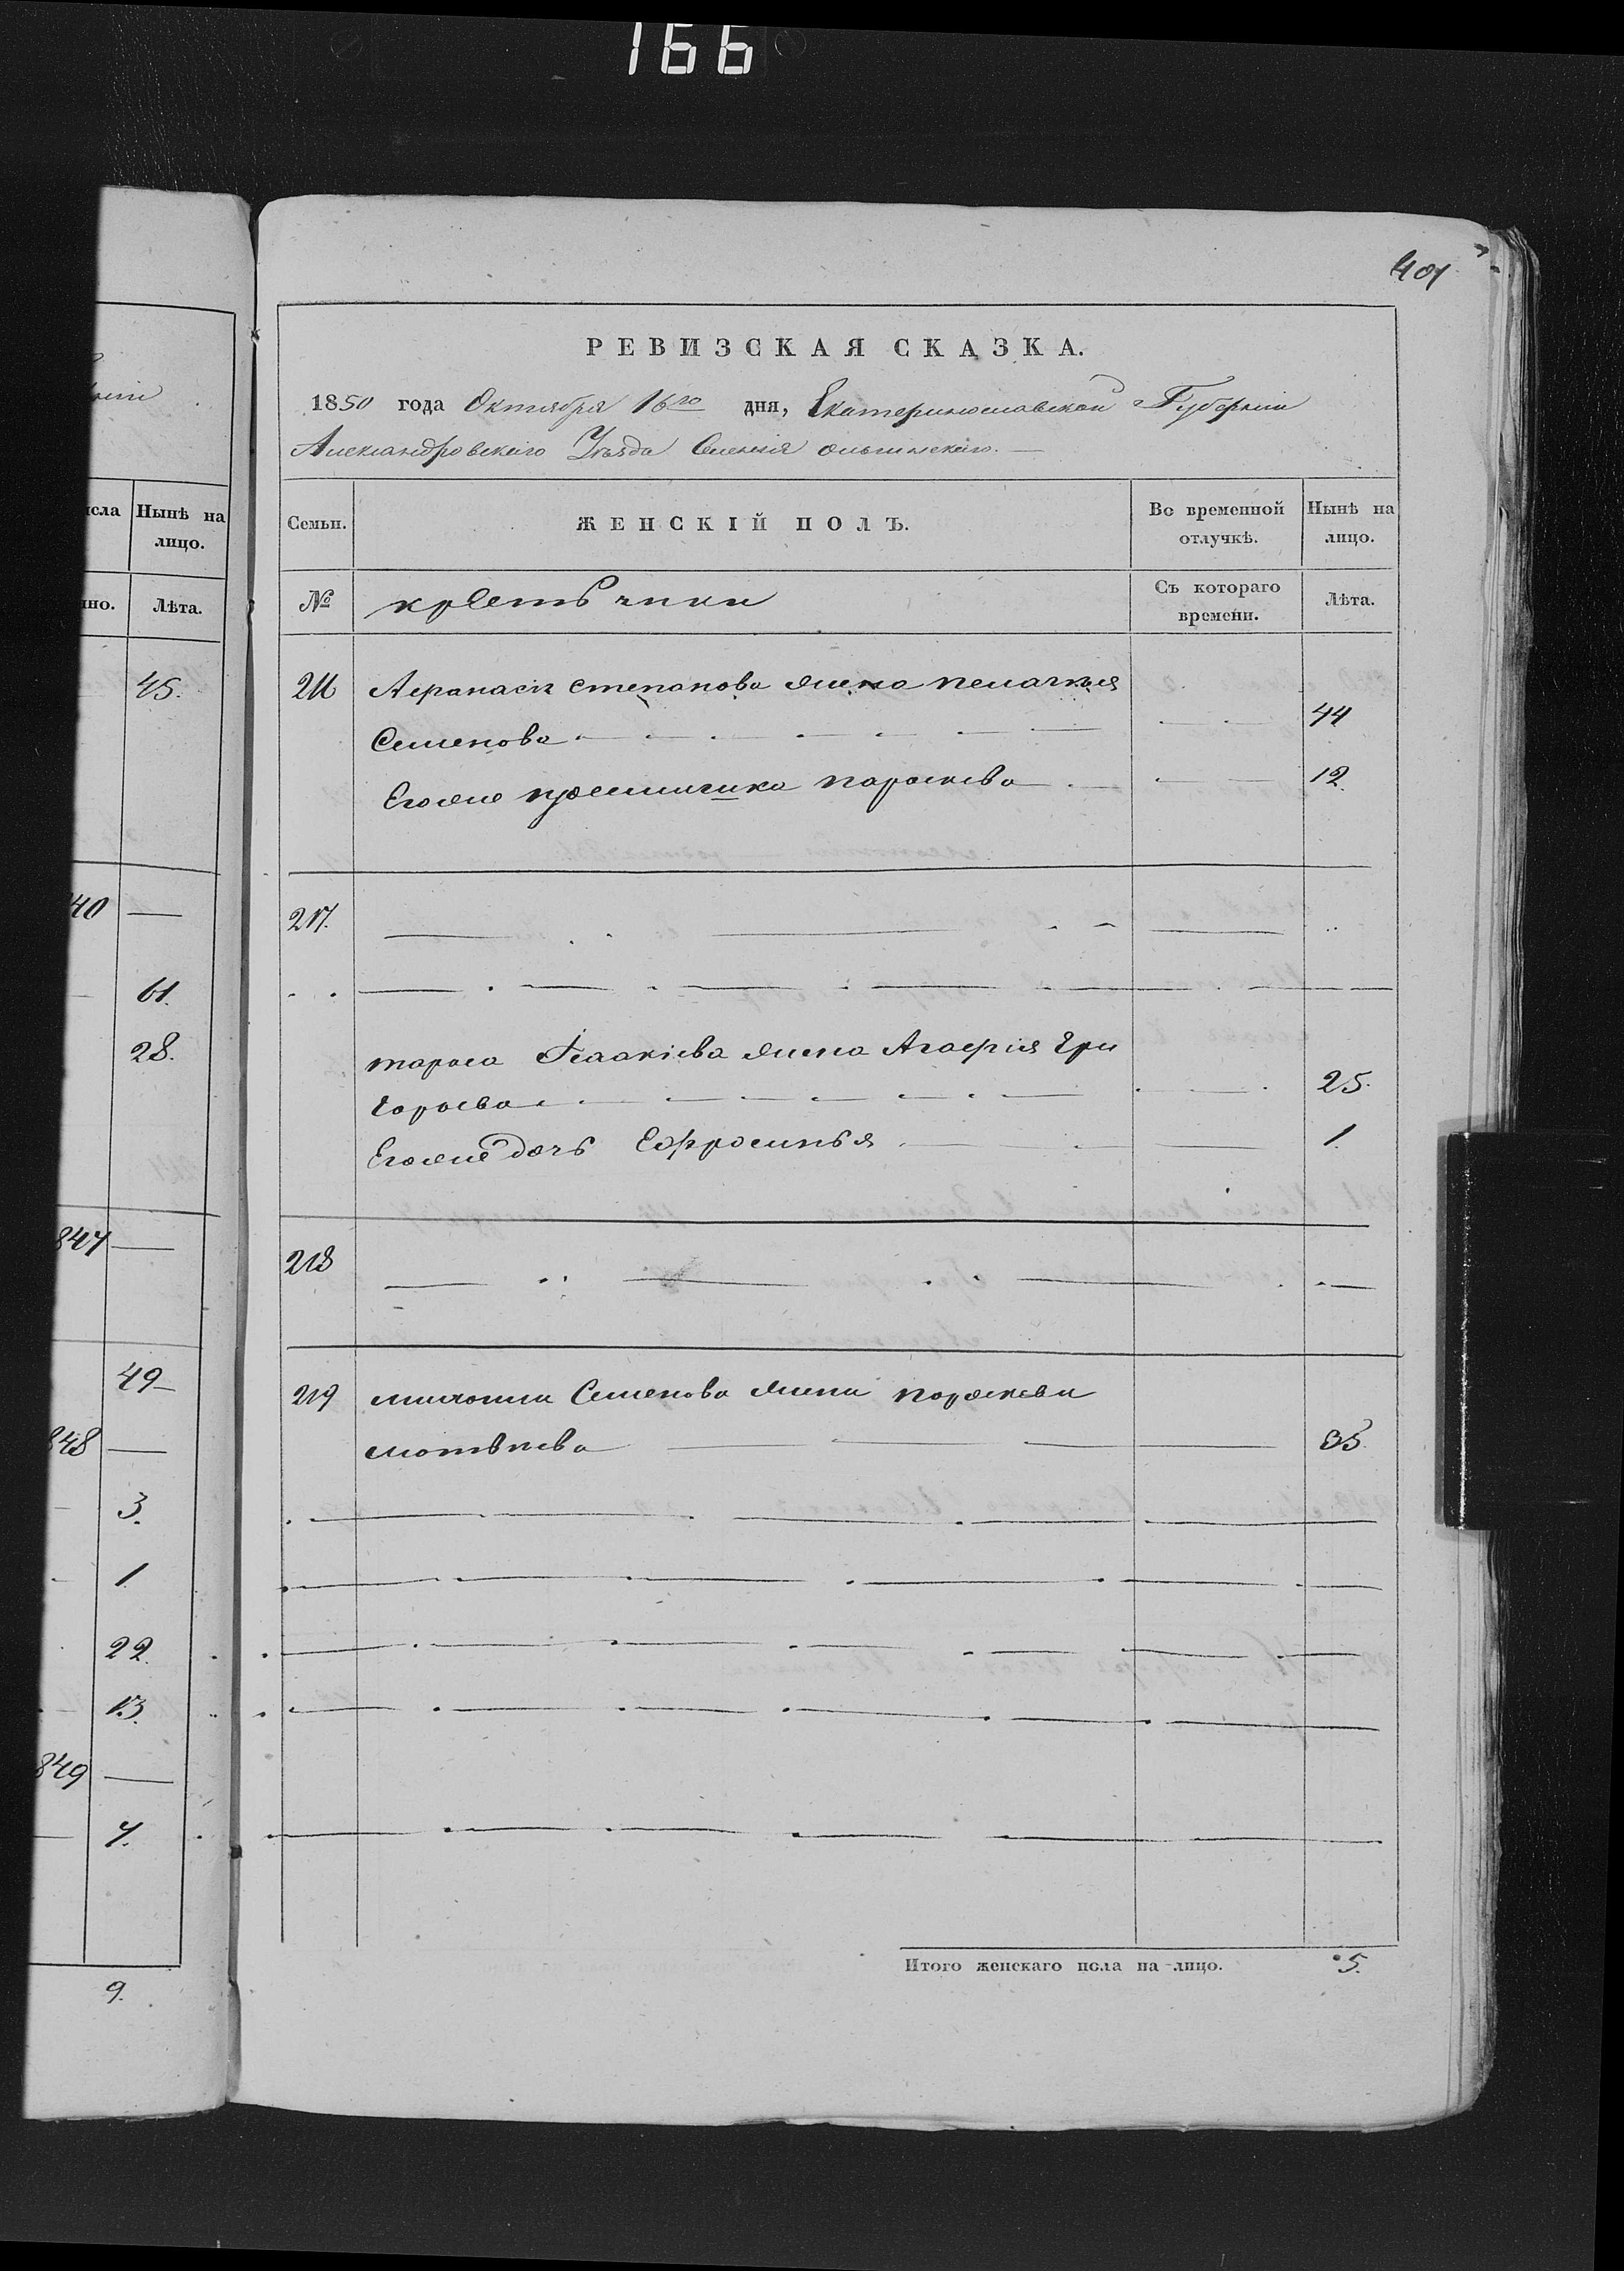 166
401
РЕВИЗСКАЯ СКАЗКА.
1850 года Октября 16го дня, Екатеринославской Губерніи
Александровскаго Уѣзда Селенія Ольгинскаго.
Семьи. ЖЕНСКІЙ ПОЛЪ. Во временной отлучкѣ. Нынѣ на лицо.
№ Съ котораго времени. Лѣта.
216 Афанасія степанова жена пелагѣя
Семенова 44
Егоже приемничика параскева 12.
217.
тараса Исаакіева жена Агафія Гри
горьева 25.
Егоже дочь Ефросинья 1.
218
219 Семенова жена параскева
матвѣева 35.
Итого женскаго пола на-лицо. 5.
исла Нынѣ на лицо.
но. Лѣта.
45.
40
61.
28.
847
49
848
3.
1
22.
13.
849
7.
9.